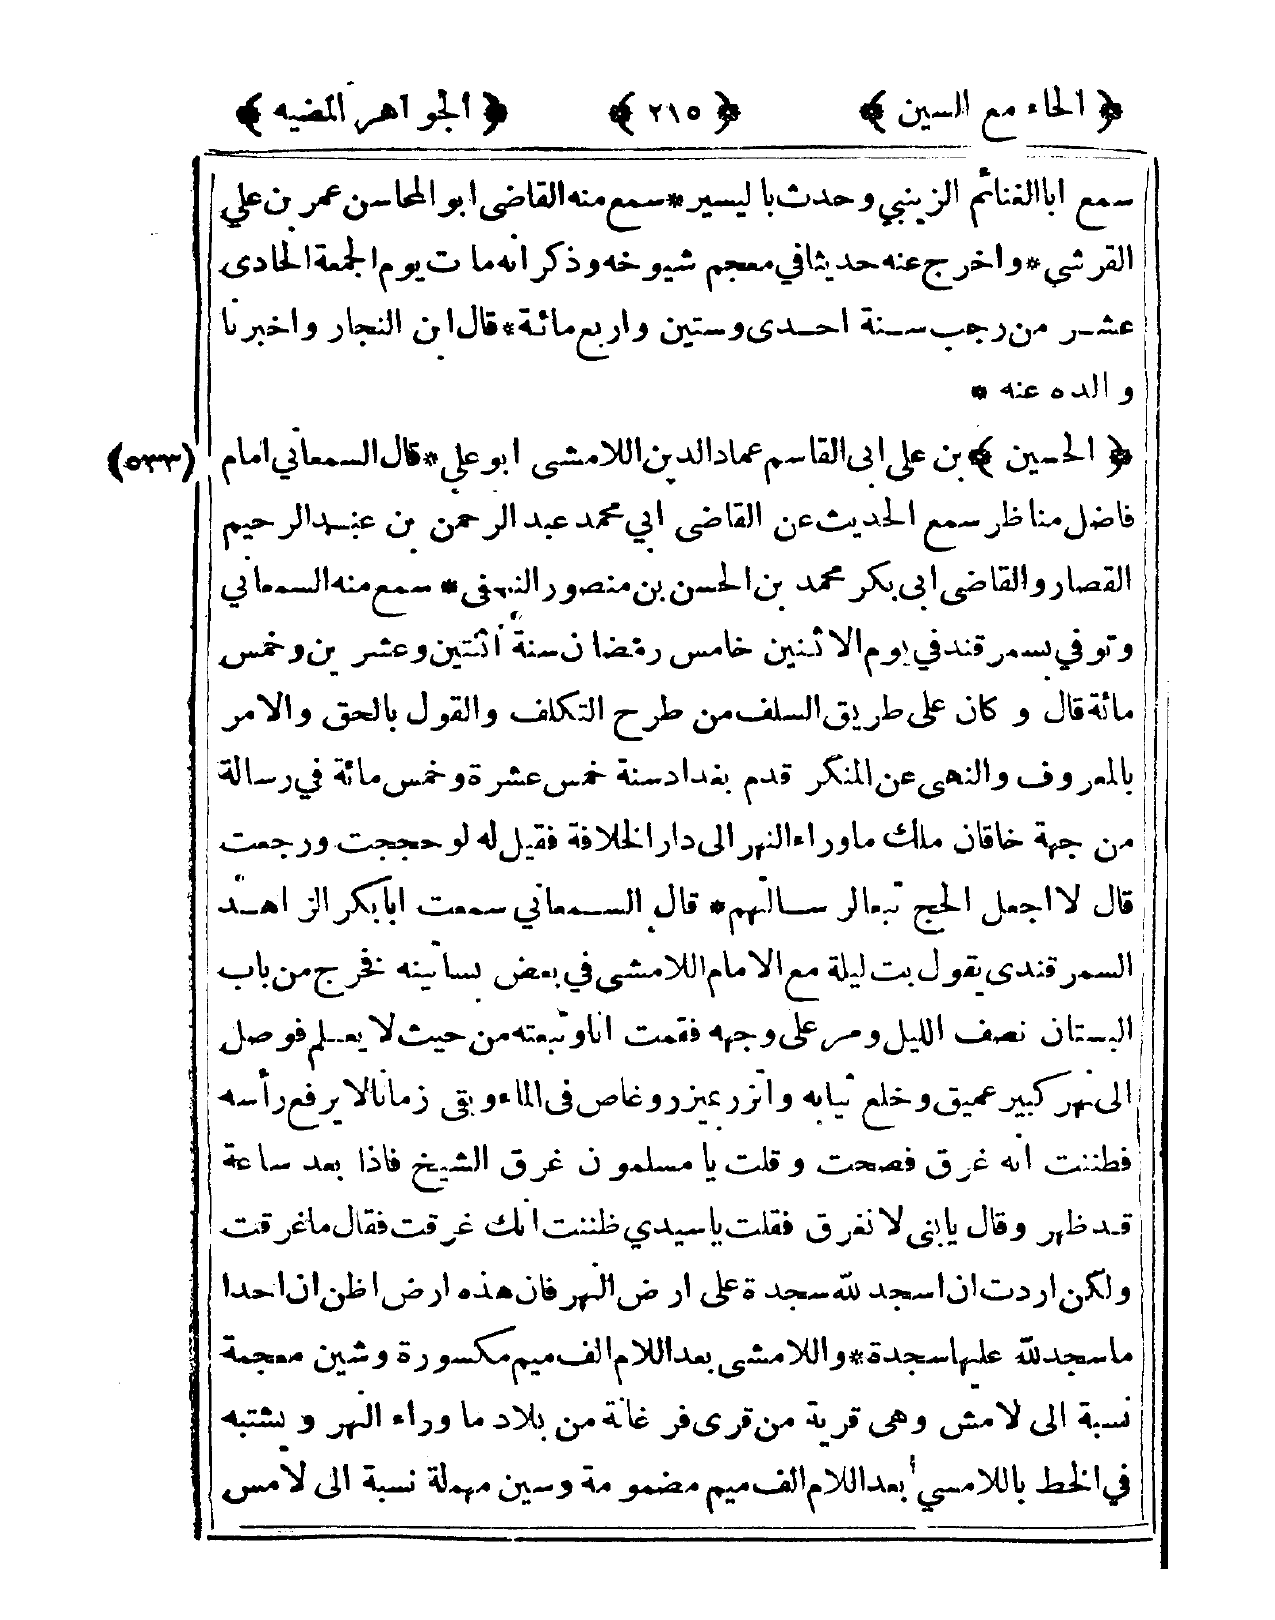 ﴿ الحاء مع السين ﴾ ﴿ ٢١٥ ﴾ ﴿ الجواهر المضيه ﴾
سمع ابا الغنائم الزينبي وحدث باليسير * سمع منه القاضى ابو المحاسن عمر بن علي
القرشي * واخرج عنه حديثا في معجم شيوخه وذكر انه مات يوم الجمعة الحادى
عشر من رجب سنة احدى وستين واربع مائة * قال ابن النجار واخبرنا
والده عنه *
﴿ الحسين ﴾ بن على ابى القاسم عماد الدين اللامشى ابو علي * قال السمعاني امام
(٥٣٣)
فاضل مناظر سمع الحديث عن القاضى ابي محمد عبد الرحمن بن عبد الرحيم
القصار والقاضى ابى بكر محمد بن الحسن بن منصور النسفى * سمع منه السمعاني
وتوفي بسمرقند في يوم الاثنين خامس رمضان سنة اثنتين وعشرين وخمس
مائة قال و كان على طريق السلف من طرح التكلف والقول بالحق والامر
بالمعروف والنهى عن المنكر قدم بغداد سنة خمس عشرة وخمس مائة في رسالة
من جهة خاقان ملك ماوراء النهر الى دار الخلافة فقيل له لو حججت ورجعت
قال لا اجعل الحج تبعا لرسالتهم * قال السمعاني سمعت ابا بكر الزاهد
السمرقندى يقول بت ليلة مع الامام اللامشى في بعض بساتينه فخرج من باب
البستان نصف الليل ومر على وجهه فقمت انا وتبعته من حيث لا يعلم فوصل
الى نهر كبير عميق وخلع ثيابه واتزر بميزر وغاص فى الماء وبقى زمانا لا يرفع رأسه
فظننت انه غرق فصحت وقلت يا مسلمون غرق الشيخ فاذا بعد ساعة
قد ظهر وقال يابنى لا نغرق فقلت يا سيدي ظننت انك غرقت فقال ما غرقت
ولكن اردت ان اسجد لله سجدة على ارض النهر فان هذه ارض اظن ان احدا
ما سجد لله عليها سجدة * واللامشى بعد اللام الف ميم مكسورة وشين معجمة
نسبة الى لامش وهى قرية من قرى فرغانة من بلاد ما وراء النهر ويشتبه
في الخط باللامسي بعد اللام الف ميم مضمومة وسين مهملة نسبة الى لامس